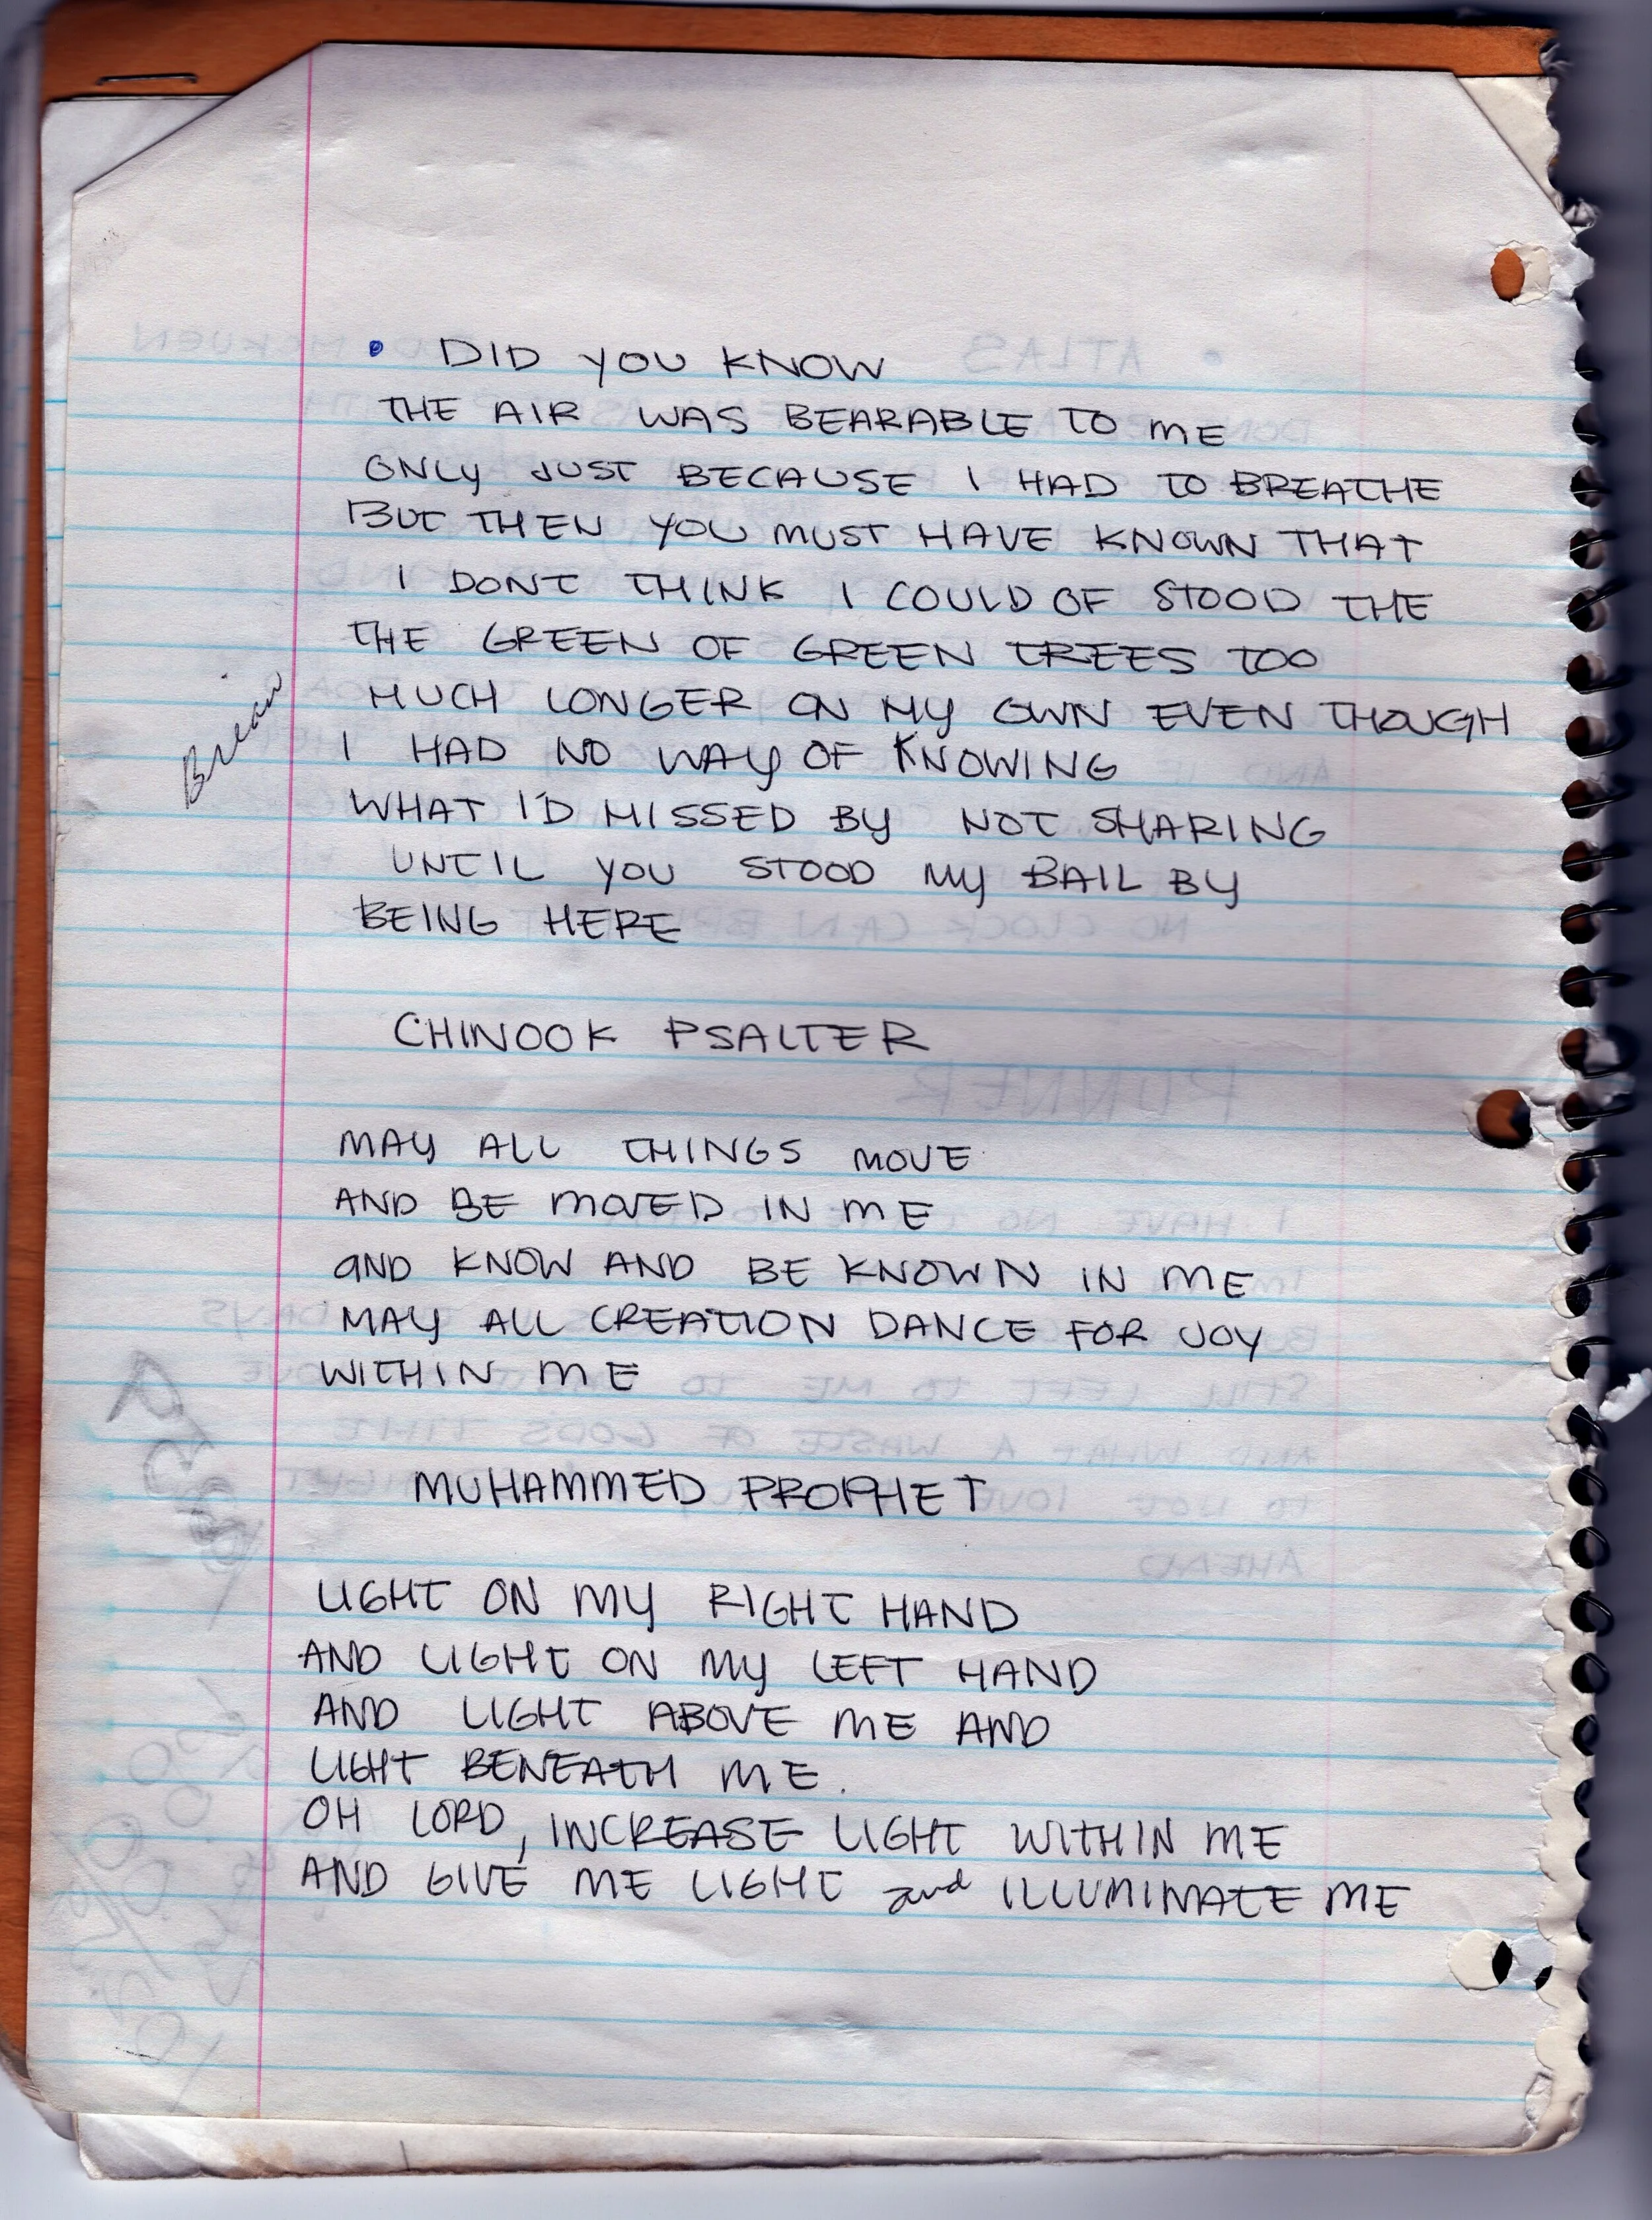 • DID YOU KNOW
THE AIR WAS BEARABLE TO ME
ONLY JUST BECAUSE I HAD TO BREATHE
BUT THEN YOU MUST HAVE KNOWN THAT
I DONT THINK I COULD OF STOOD THE
THE GREEN OF GREEN TREES TOO
MUCH LONGER ON MY OWN EVEN THOUGH
I HAD NO WAY OF KNOWING
WHAT I'D MISSED BY NOT SHARING
UNTIL YOU STOOD MY BAIL BY
BEING HERE
Brian
CHINOOK PSALTER
MAY ALL THINGS MOVE
AND BE MOVED IN ME
AND KNOW AND BE KNOWN IN ME
MAY ALL CREATION DANCE FOR JOY
WITHIN ME
MUHAMMED PROPHET
LIGHT ON MY RIGHT HAND
AND LIGHT ON MY LEFT HAND
AND LIGHT ABOVE ME AND
LIGHT BENEATH ME.
OH LORD, INCREASE LIGHT WITHIN ME
AND GIVE ME LIGHT and ILLUMINATE ME